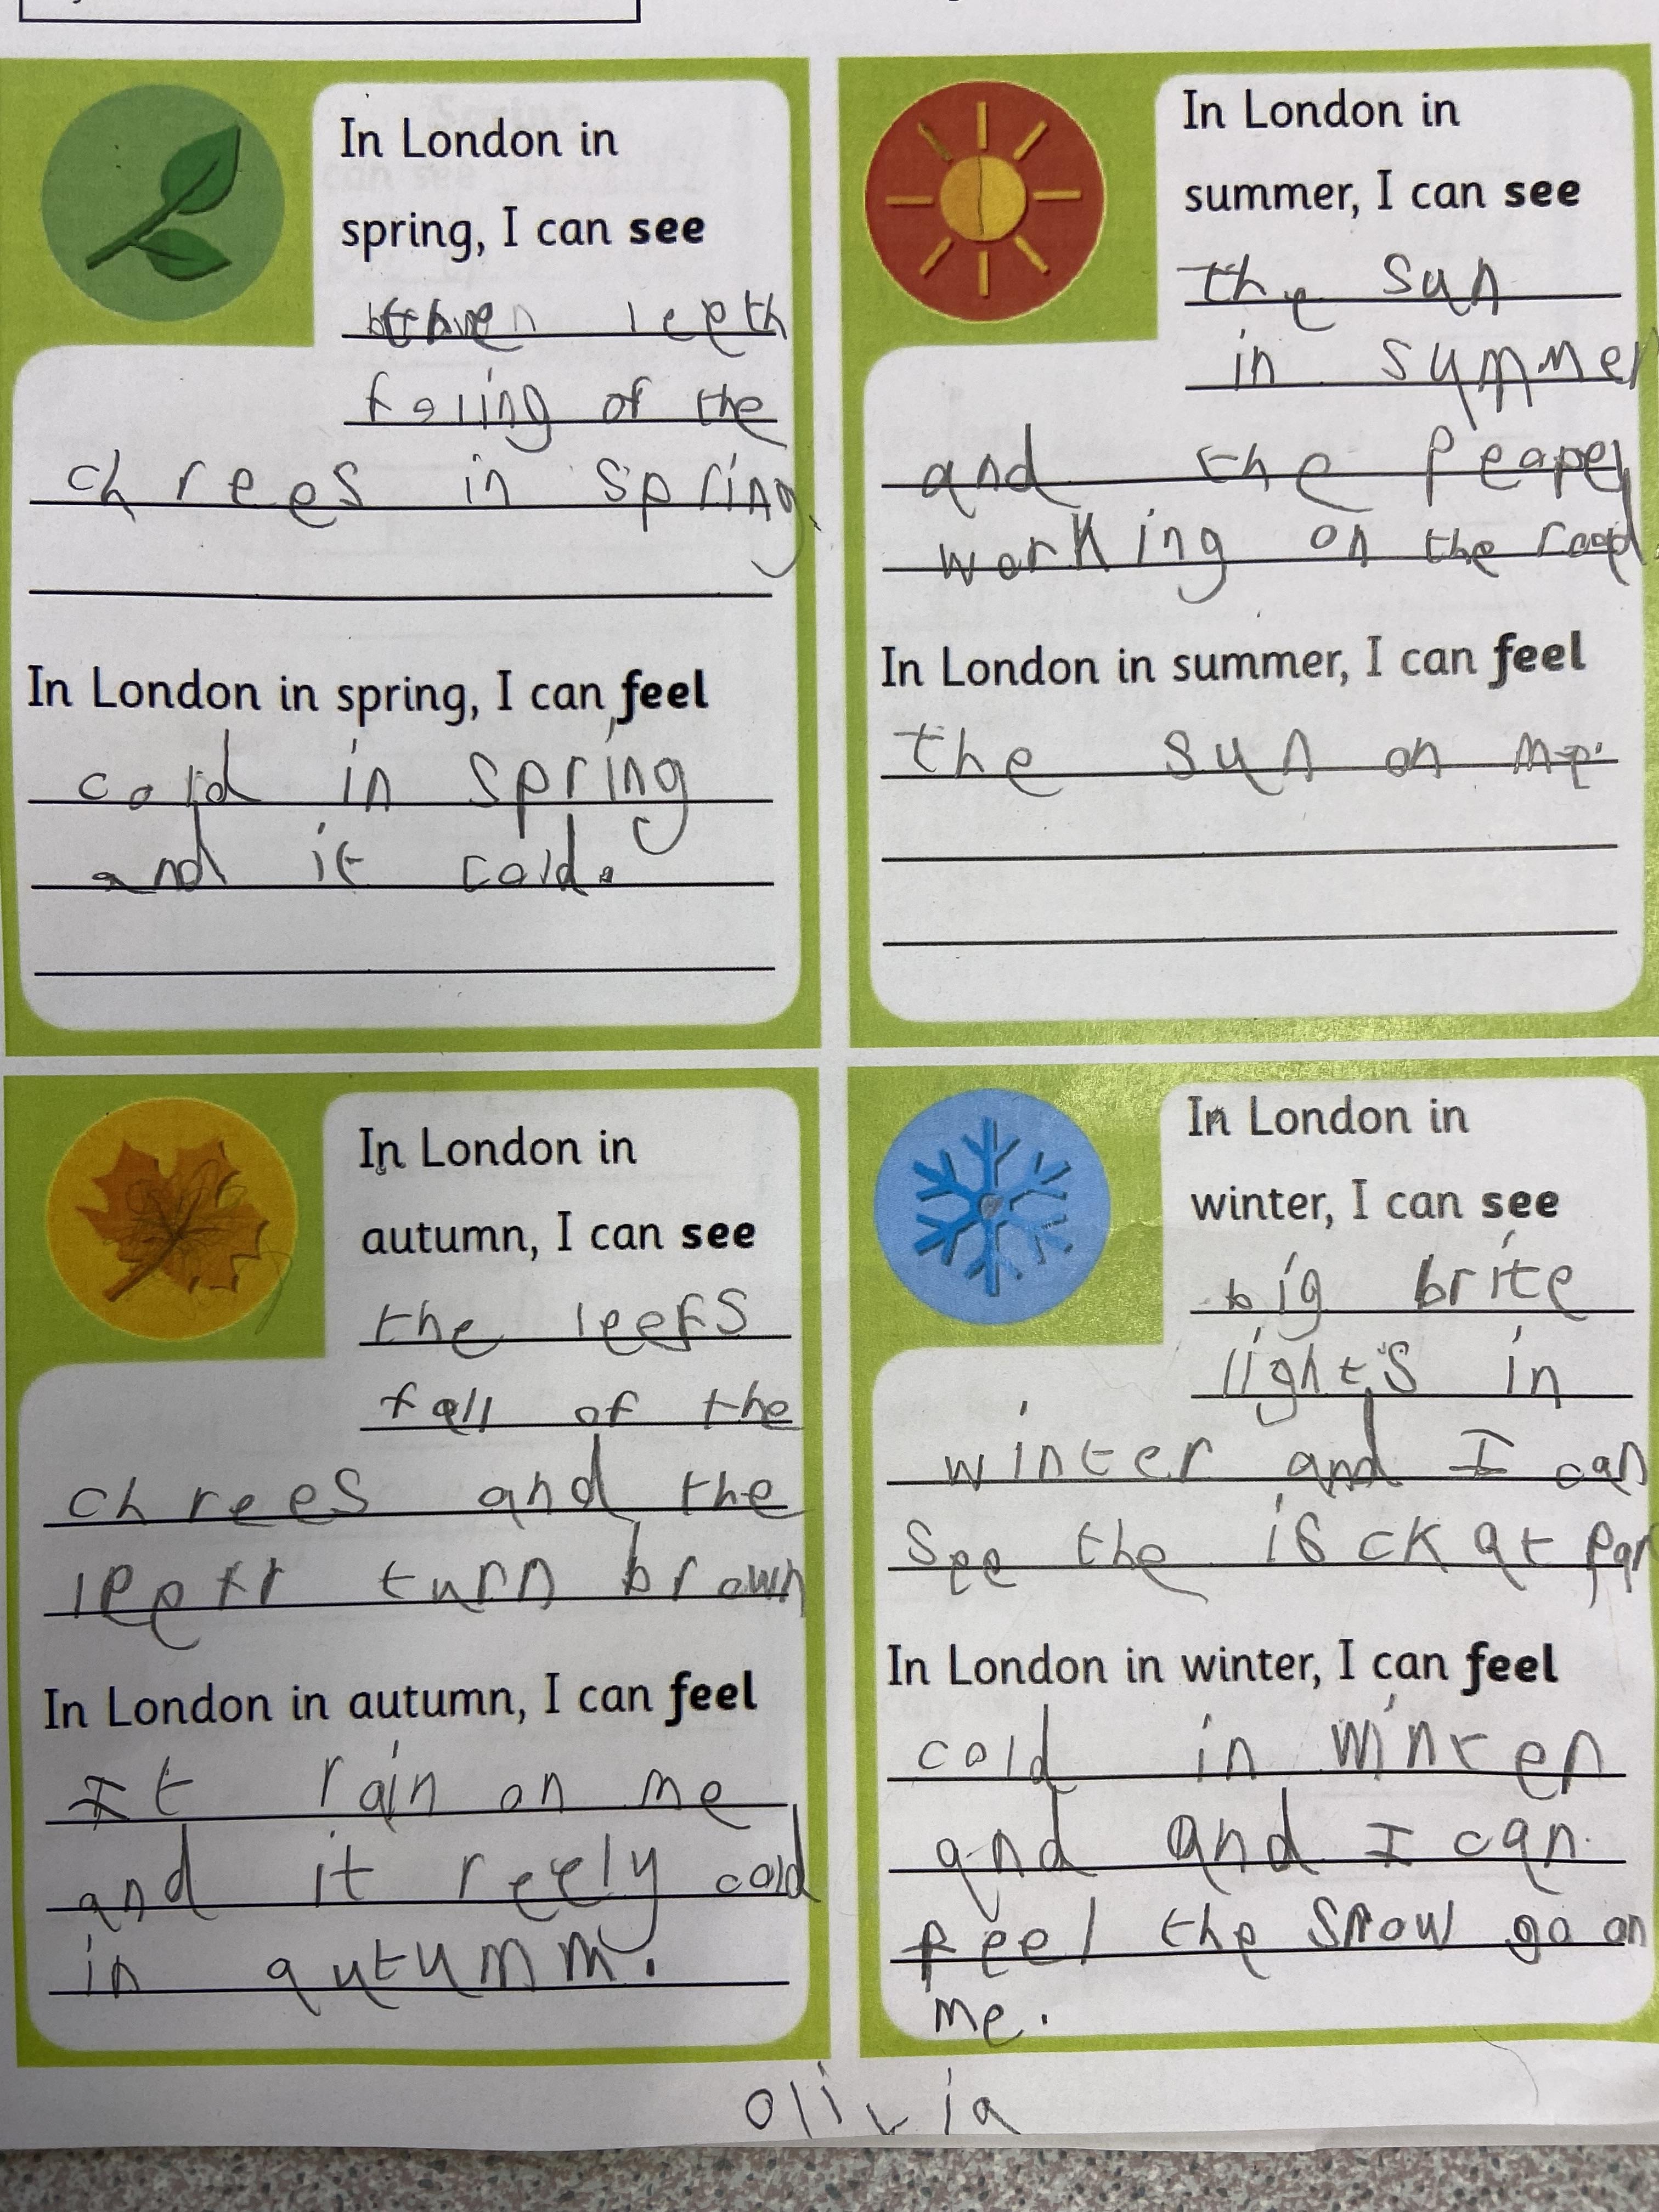 In London in
spring, I can see
leeth
faling of the
chrees in spring
In London in spring, I can feel
cold in spring
and it cold.
In London in
summer, I can see
the sun
in summer
and the
working on the road
In London in summer, I can feel
the sun on me.
In London in
autumn, I can see
the leefs
fall of the
chrees and the
turn brown
In London in autumn, I can feel
It rain on me
and it reely cold
in autumm.
In London in
winter, I can see
big brite
lights in
winter and I can
see the at
In London in winter, I can feel
cold in winter
and and I can
feel the snow go on
me.
olivia